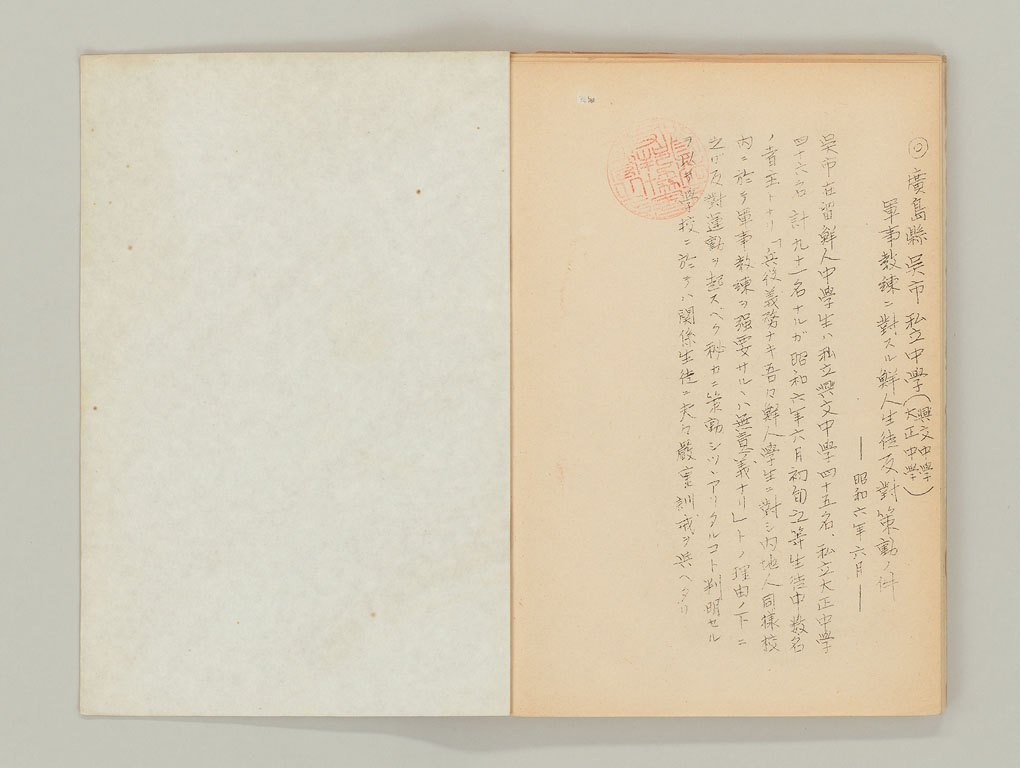 ◎廣島縣呉市私立中學(興文中學 大正中學)
軍事教練ニ對スル鮮人生徒反對策動ノ件
―昭和六年六月―
呉市在留鮮人中學生ハ私立興文中學四十五名、私立大正中學
四十六名 計九十一名ナルガ昭和六年六月初旬之等生徒中数名
ノ者主トナリ「兵役義務ナキ吾々鮮人學生ニ對シ内地人同様校
内ニ於テ軍事教練ヲ強要サルヽハ無意義ナリ」トノ理由ノ下ニ
之ガ反對運動ヲ起スベク秘カニ策動シツヽアリタルコト判明セル
ヲ以テ學校ニ於テハ関係生徒ニ夫々嚴重訓戒ヲ與ヘタリ